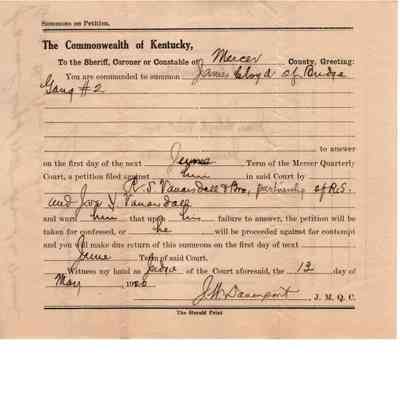 Summons on Petition.
The Commonwealth of Kentucky,
To the Sheriff, Coroner or Constable of Mercer County, Greeting:
You are commanded to summon James Cloyd of Bridge
Gang #2
to answer
on the first day of the next June Term of the Mercer Quarterly
Court, a petition filed against him in said Court by
R. S. Vanarsdall & Bro, partnership of R.S.
and Jno. Vanarsdall
and warn him that upon his failure to answer, the petition will be
taken for confessed, or he will be proceeded against for contempt
and you will make due return of this summons on the first day of next
June Term of said Court.
Witness my hand as Judge of the Court aforesaid, the 13 day of
May, 19
J W Davenport, J. M. Q. C.
The Herald Print